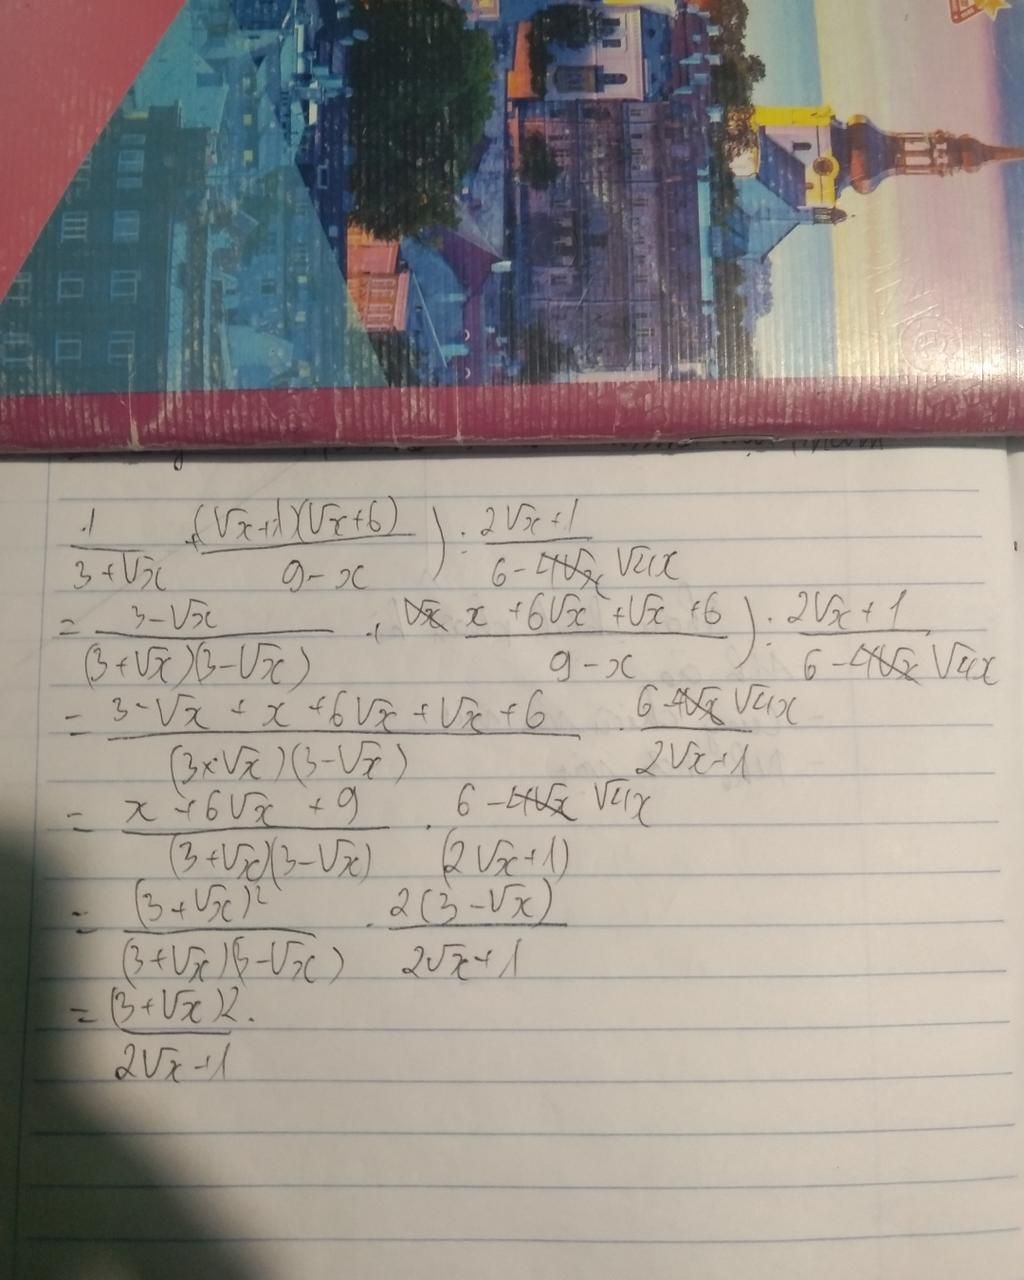 1/(3+√x) + (√x+1)(√x+6)/(9-x) ) : (2√x+1)/(6-√4x)
= (3-√x)/((3+√x)(3-√x)) + (x+6√x+√x+6)/(9-x) ) : (2√x+1)/(6-√4x)
= (3-√x+x+6√x+√x+6)/((3+√x)(3-√x)) . (6-√4x)/(2√x+1)
= (x+6√x+9)/((3+√x)(3-√x)) . (6-√4x)/(2√x+1)
= (3+√x)²/((3+√x)(3-√x)) . 2(3-√x)/(2√x+1)
= (3+√x)2./(2√x+1)